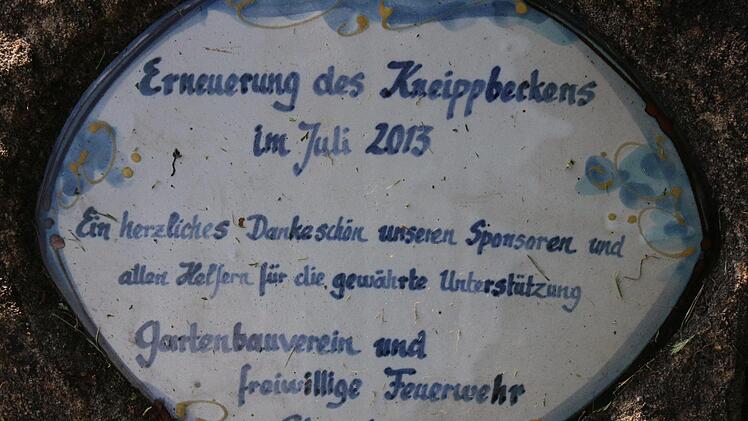 Erneuerung des Kneippbeckens
im Juli 2013
Ein herzliches Dankeschön unseren Sponsoren und
allen Helfern für die gewährte Unterstützung
Gartenbauverein und
freiwillige Feuerwehr